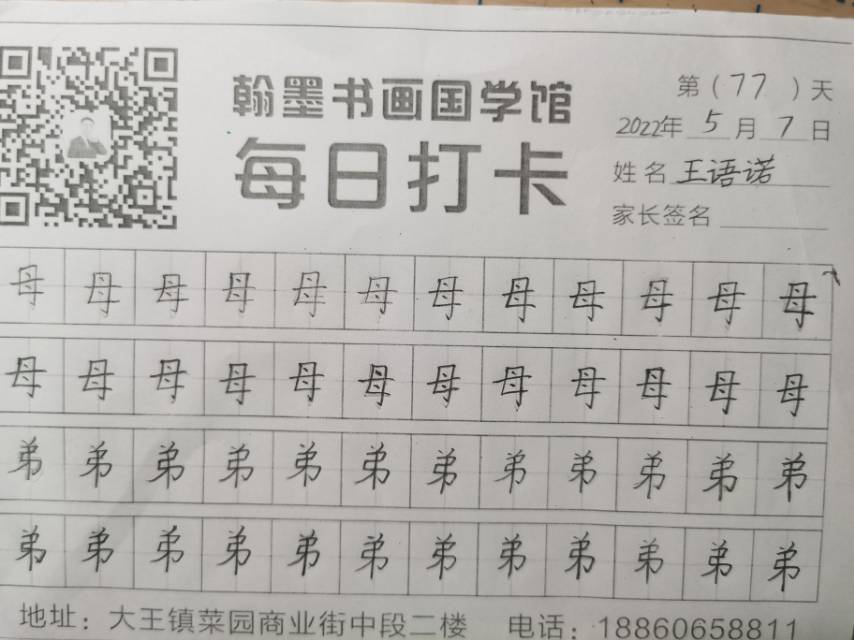 翰墨书画国学馆
每日打卡
第（77）天
2022年5月7日
姓名 王语诺
家长签名
母母母母母母母母母母母母
母母母母母母母母母母母母
弟弟弟弟弟弟弟弟弟弟弟弟
弟弟弟弟弟弟弟弟弟弟弟弟
地址：大王镇菜园商业街中段二楼 电话：18860658811